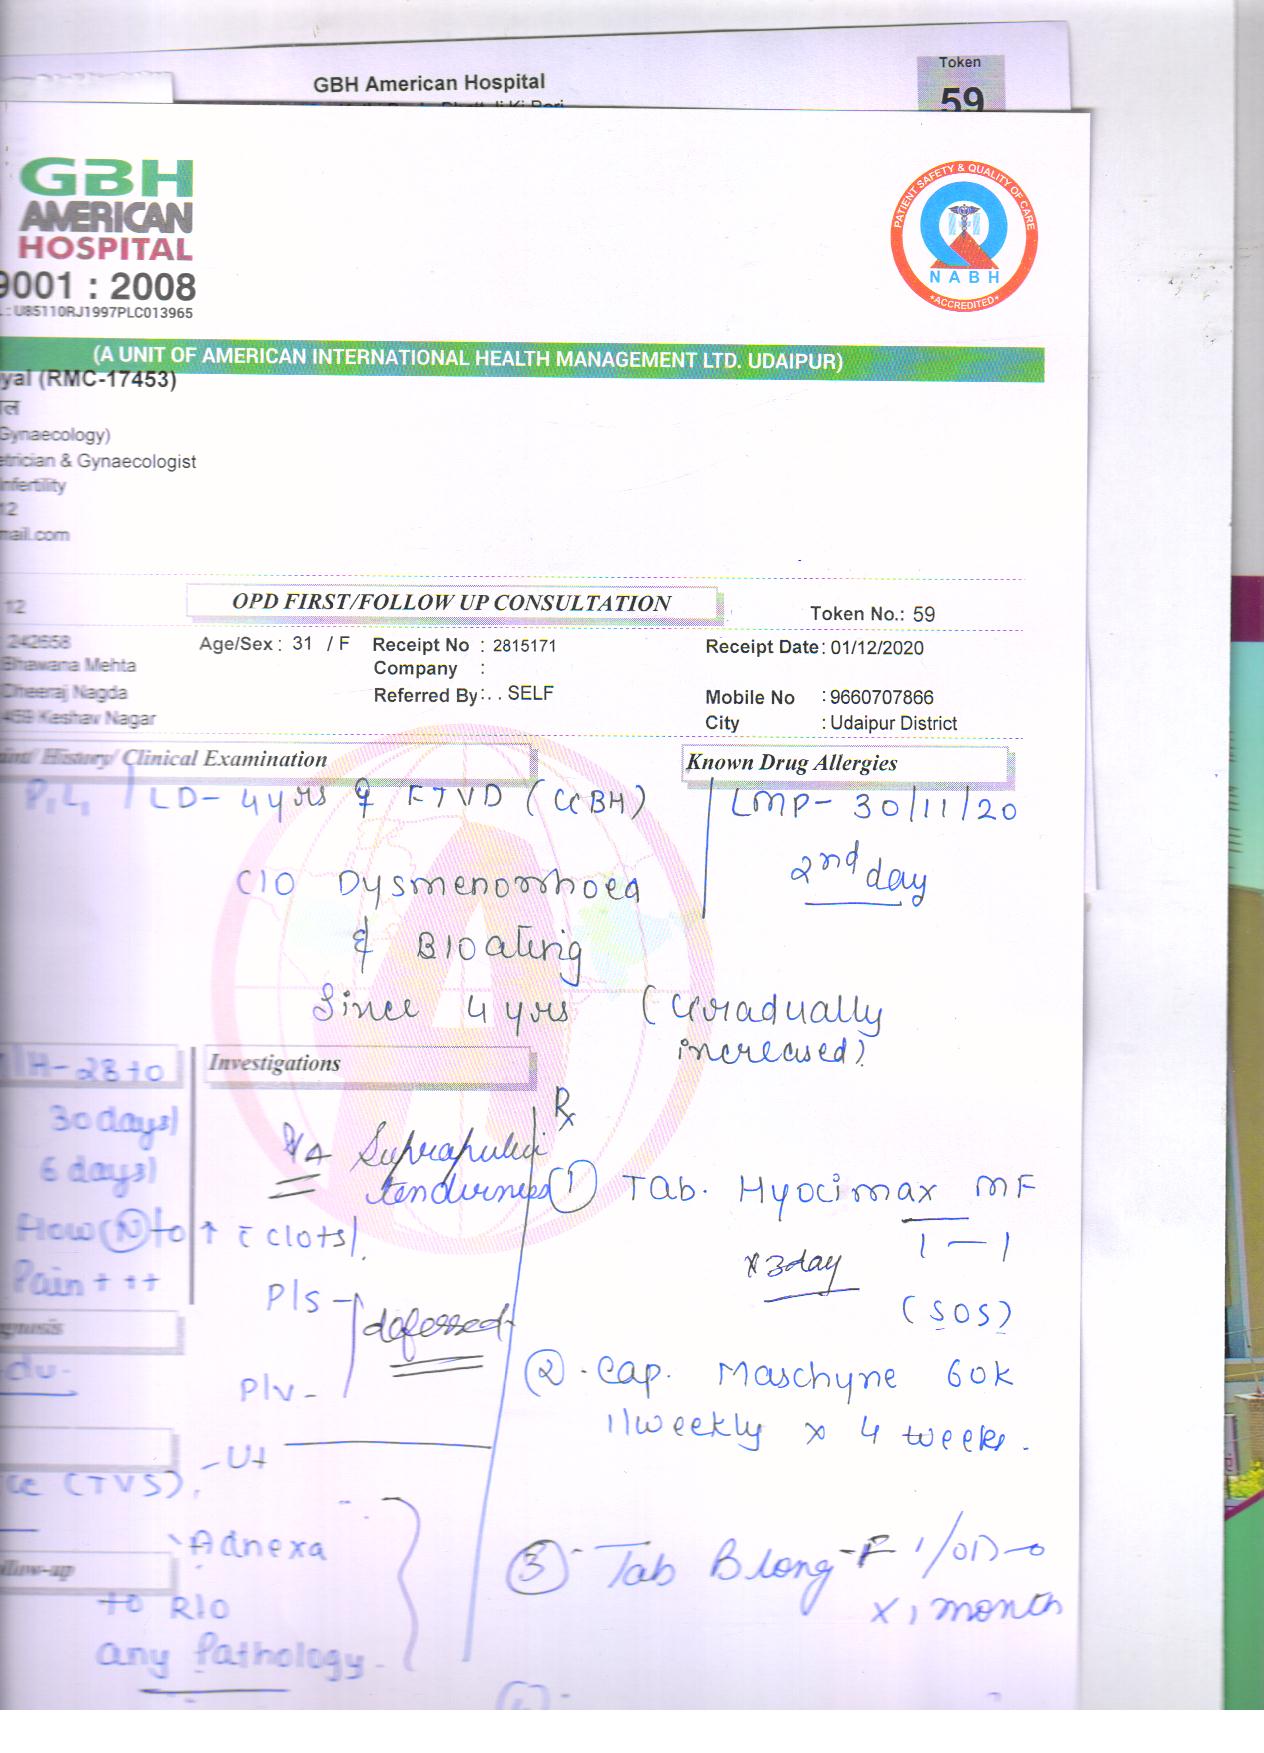 GBH American Hospital
Token
59
GBH
AMERICAN
HOSPITAL
9001 : 2008
: U85110RJ1997PLC013965
PATIENT SAFETY & QUALITY OF CARE
NABH
*ACCREDITED*
(A UNIT OF AMERICAN INTERNATIONAL HEALTH MANAGEMENT LTD. UDAIPUR)
yal (RMC-17453)
ल
Gynaecology)
etrician & Gynaecologist
Infertility
12
mail.com
12
OPD FIRST/FOLLOW UP CONSULTATION
Token No.: 59
242658
Age/Sex : 31 / F Receipt No : 2815171 Receipt Date : 01/12/2020
Bhawana Mehta Company :
Dheeraj Nagda Referred By : . . SELF Mobile No : 9660707866
459 Keshav Nagar City : Udaipur District
aint/ History/ Clinical Examination
Known Drug Allergies
P1L1 / LD- 4yrs FTVD (GBH)
LMP- 30/11/20
2nd day
C/O Dysmenorrhoea
& Bloating
Since 4 yrs (Gradually
increased)
MH-28 to
30 days)
6 days)
Flow (N) to ↑ c̄ clots/.
Pain + ++
Investigations
P/A Suprapubic
tenderness
P/S -
deferred
P/V -
Rx
① Tab. Hyocimax MF
1 — 1
x 3day
(SOS)
② - Cap. Maschyne 60K
1/weekly x 4 weeks.
③ - Tab Blong-F 1/OD
x 1 month
gnosis
adv.
(TVS).
- Ut
Adnexa
ollow-up
to R/O
any Pathology.